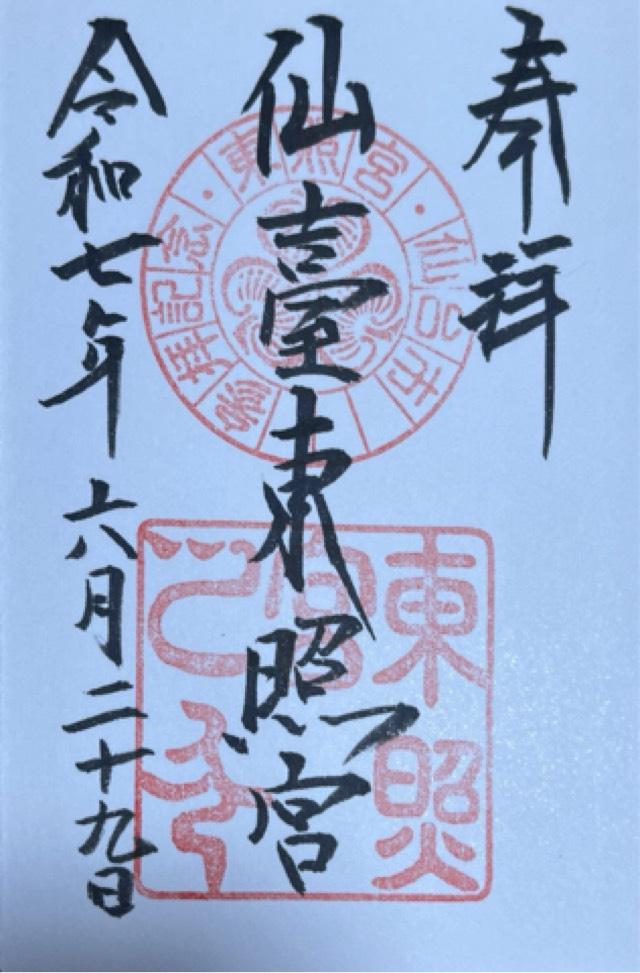 奉拝
仙臺東照宮
令和七年六月二十九日
東照宮・仙台市・参拝記念
東照宮之印